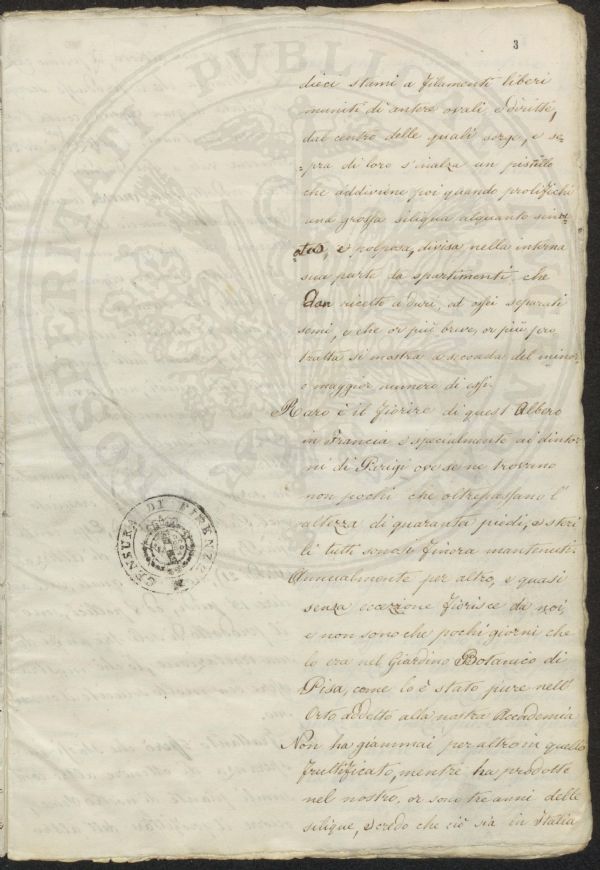 3
dieci stami a filamenti liberi
muniti di antere ovali, e diritte,
dal centro delle quali sorge, e so-
-pra di loro s'inalza un pistillo
che addiviene poi quando prolifichi
una grossa siliqua alquanto
e polposa, divisa nella interna
sua parte da spartimenti che
dan ricetto a duri, ed ossei separati
semi, e che or più breve, or più pro
tratta si mostra a seconda del minor,
o maggior numero di essi.
Raro è il fiorire di quest'Albero
in Francia e specialmente ai dintor
ni di Parigi ove se ne trovano
non pochi che oltrepassano l'
altezza di quaranta piedi, e steri
li tutti sonosi finora mantenuti.
Annualmente per altro, e quasi
senza eccezione fiorisce da noi,
e non sono che pochi giorni che
lo era nel Giardino Botanico di
Pisa, come lo è stato pure nell'
Orto addetto alla nostra Accademia
Non ha giammai per altro in quello
fruttificato, mentre ha prodotte
nel nostro, or sono tre anni delle
silique, e credo che ciò sia in Italia
CENSURA DI FIRENZE